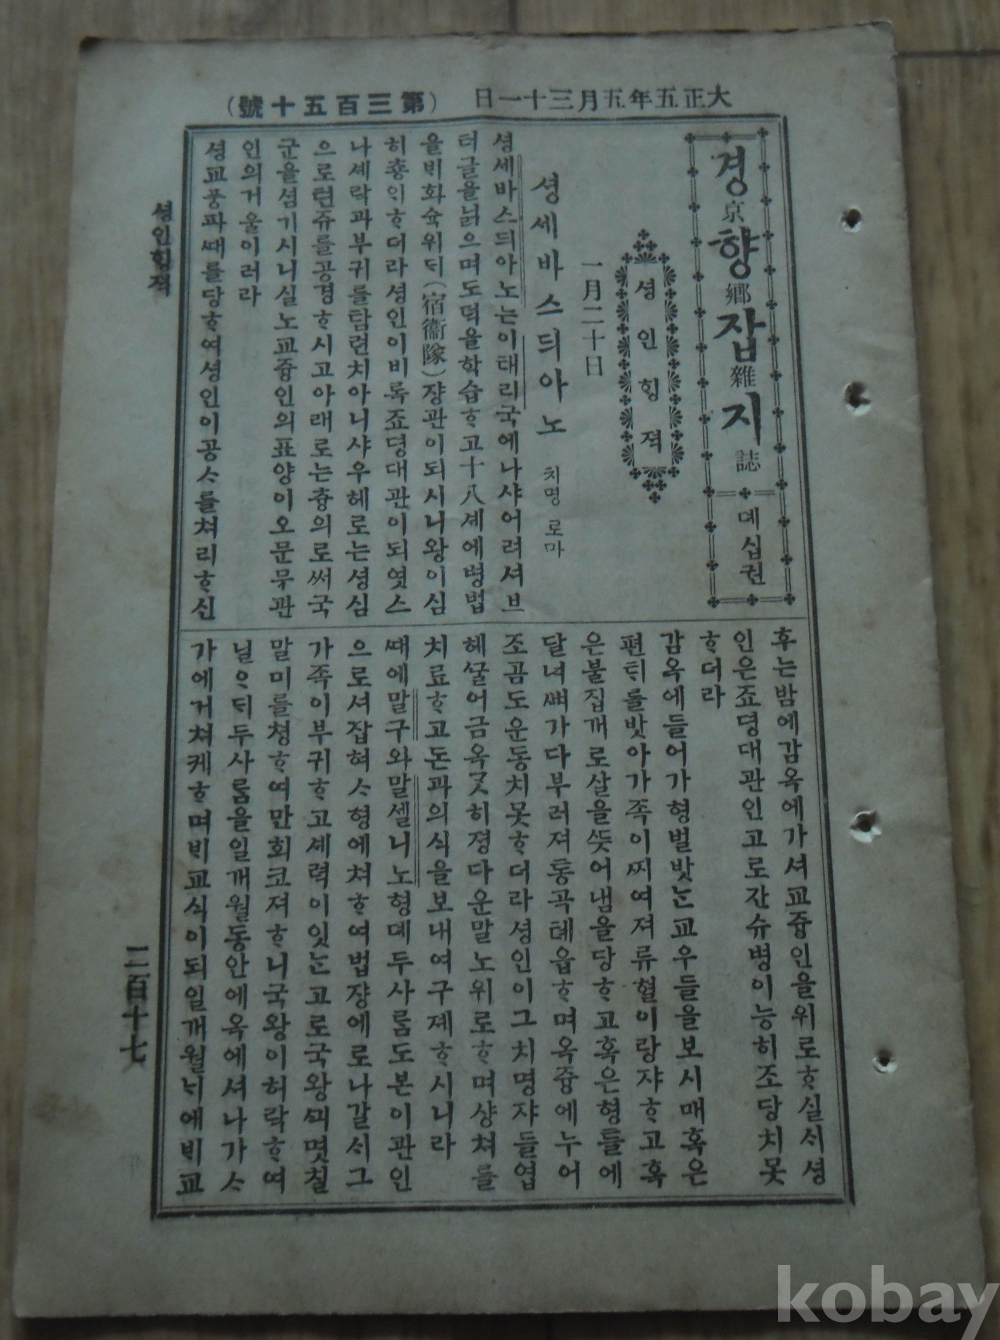 大正五年五月三十一日 (第三百五十號)
경京향鄕잡雜지誌 뎨십권
셩인ᄒᆡᆼ젹
一月二十日
셩세바스듸아노 치명 로마
셩세바스듸아노는이태리국에나샤어려셔브
터글을닑으며도덕을학습ᄒᆞ고十八셰에병법
을ᄇᆡ화슉위ᄃᆡ(宿衞隊)쟝관이되시니왕이심
히춍ᄋᆡᄒᆞ더라셩인이비록죠뎡대관이되엿스
나셰락과부귀를탐련치아니샤우헤로는셩심
으로텬쥬를공경ᄒᆞ시고아래로는츙의로써국
군을셤기시니실노교즁인의표양이오문무관
인의거울이러라
셩교풍파ᄯᅢ를당ᄒᆞ여셩인이공ᄉᆞ를쳐리ᄒᆞ신
후는밤에감옥에가셔교즁인을위로ᄒᆞ실ᄉᆡ셩
인은죠뎡대관인고로잔슈병이능히조당치못
ᄒᆞ더라
감옥에들어가형벌밧ᄂᆞᆫ교우들을보시매혹은
편ᄐᆡ를밧아가족이ᄶᅵ여져류혈이랑쟈ᄒᆞ고혹
은불집개로살을ᄯᅳᆺ어냄을당ᄒᆞ고혹은형틀에
달녀ᄲᅧ가다부러져통곡톄읍ᄒᆞ며옥즁에누어
조곰도운동치못ᄒᆞ더라셩인이그치명쟈들엽
헤ᄭᅮᆯ어금옥ᄀᆞᆺ히졍다운말노위로ᄒᆞ며샹쳐를
치료ᄒᆞ고돈과의식을보내여구졔ᄒᆞ시니라
ᄯᅢ에말구와말셀니노형뎨두사ᄅᆞᆷ도본이관인
으로셔잡혀ᄉᆞ형에쳐ᄒᆞ여법쟝에로나갈ᄉᆡ그
가족이부귀ᄒᆞ고셰력이잇ᄂᆞᆫ고로국왕ᄭᅴ몃칠
말미를쳥ᄒᆞ여만회코져ᄒᆞ니국왕이허락ᄒᆞ여
닐ᄋᆞᄃᆡ두사ᄅᆞᆷ을일개월동안에옥에셔나가ᄉᆞ
가에거쳐케ᄒᆞ며ᄇᆡ교식이되일개월ᄂᆡ에ᄇᆡ교
셩인ᄒᆡᆼ젹
二百十七
kobay